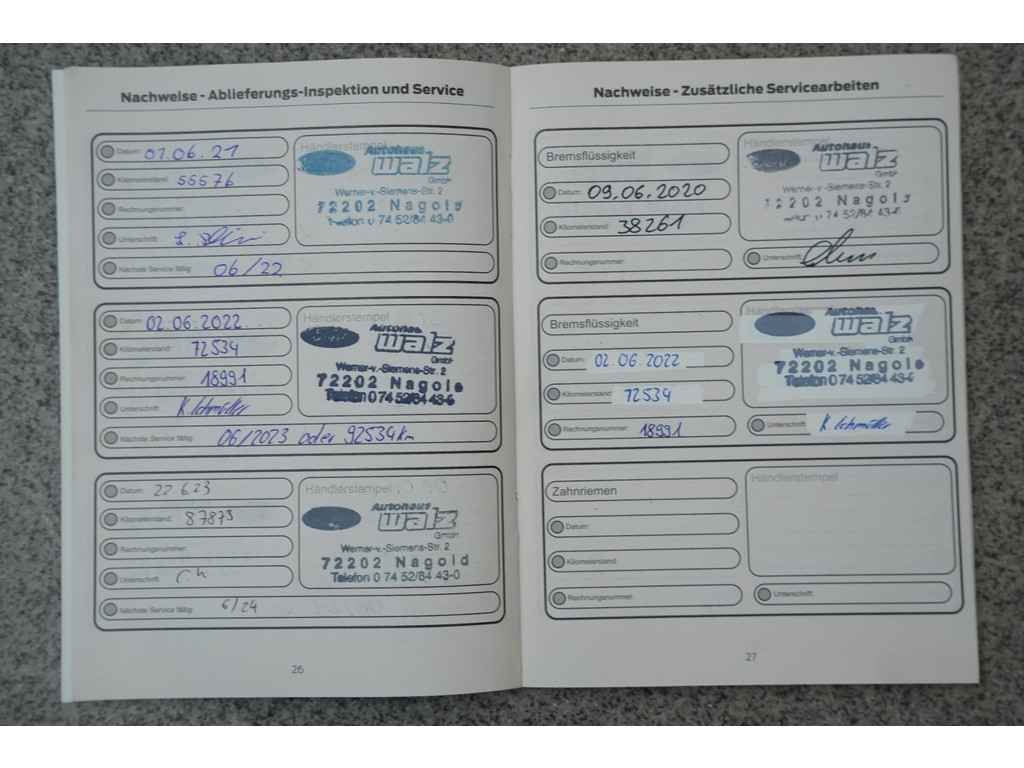 Nachweise - Ablieferungs-Inspektion und Service
Datum: 01.06.21
Kilometerstand: 55576
Rechnungsnummer:
Unterschrift:
Nächste Service fällig: 06/22
Händlerstempel
Autohaus
Walz
GmbH
Werner-v.-Siemens-Str. 2
72202 Nagold
Telefon 0 74 52/84 43-0
Datum: 02.06.2022
Kilometerstand: 72534
Rechnungsnummer: 18991
Unterschrift: K. Schmöller
Nächste Service fällig: 06/2023 oder 92534km
Händlerstempel
Autohaus
Walz
GmbH
Werner-v.-Siemens-Str. 2
72202 Nagold
Telefon 0 74 52/84 43-0
Datum: 22.6.23
Kilometerstand: 87873
Rechnungsnummer:
Unterschrift:
Nächste Service fällig: 6/24
Händlerstempel
Autohaus
Walz
GmbH
Werner-v.-Siemens-Str. 2
72202 Nagold
Telefon 0 74 52/84 43-0
26
Nachweise - Zusätzliche Servicearbeiten
Bremsflüssigkeit
Datum: 09.06.2020
Kilometerstand: 38261
Rechnungsnummer:
Händlerstempel
Autohaus
Walz
GmbH
Werner-v.-Siemens-Str. 2
72202 Nagold
Telefon 0 74 52/84 43-0
Unterschrift:
Bremsflüssigkeit
Datum: 02.06.2022
Kilometerstand: 72534
Rechnungsnummer: 18991
Autohaus
Walz
GmbH
Werner-v.-Siemens-Str. 2
72202 Nagold
Telefon 0 74 52/84 43-0
Unterschrift: K. Schmöller
Zahnriemen
Datum:
Kilometerstand:
Rechnungsnummer:
Händlerstempel
Unterschrift:
27